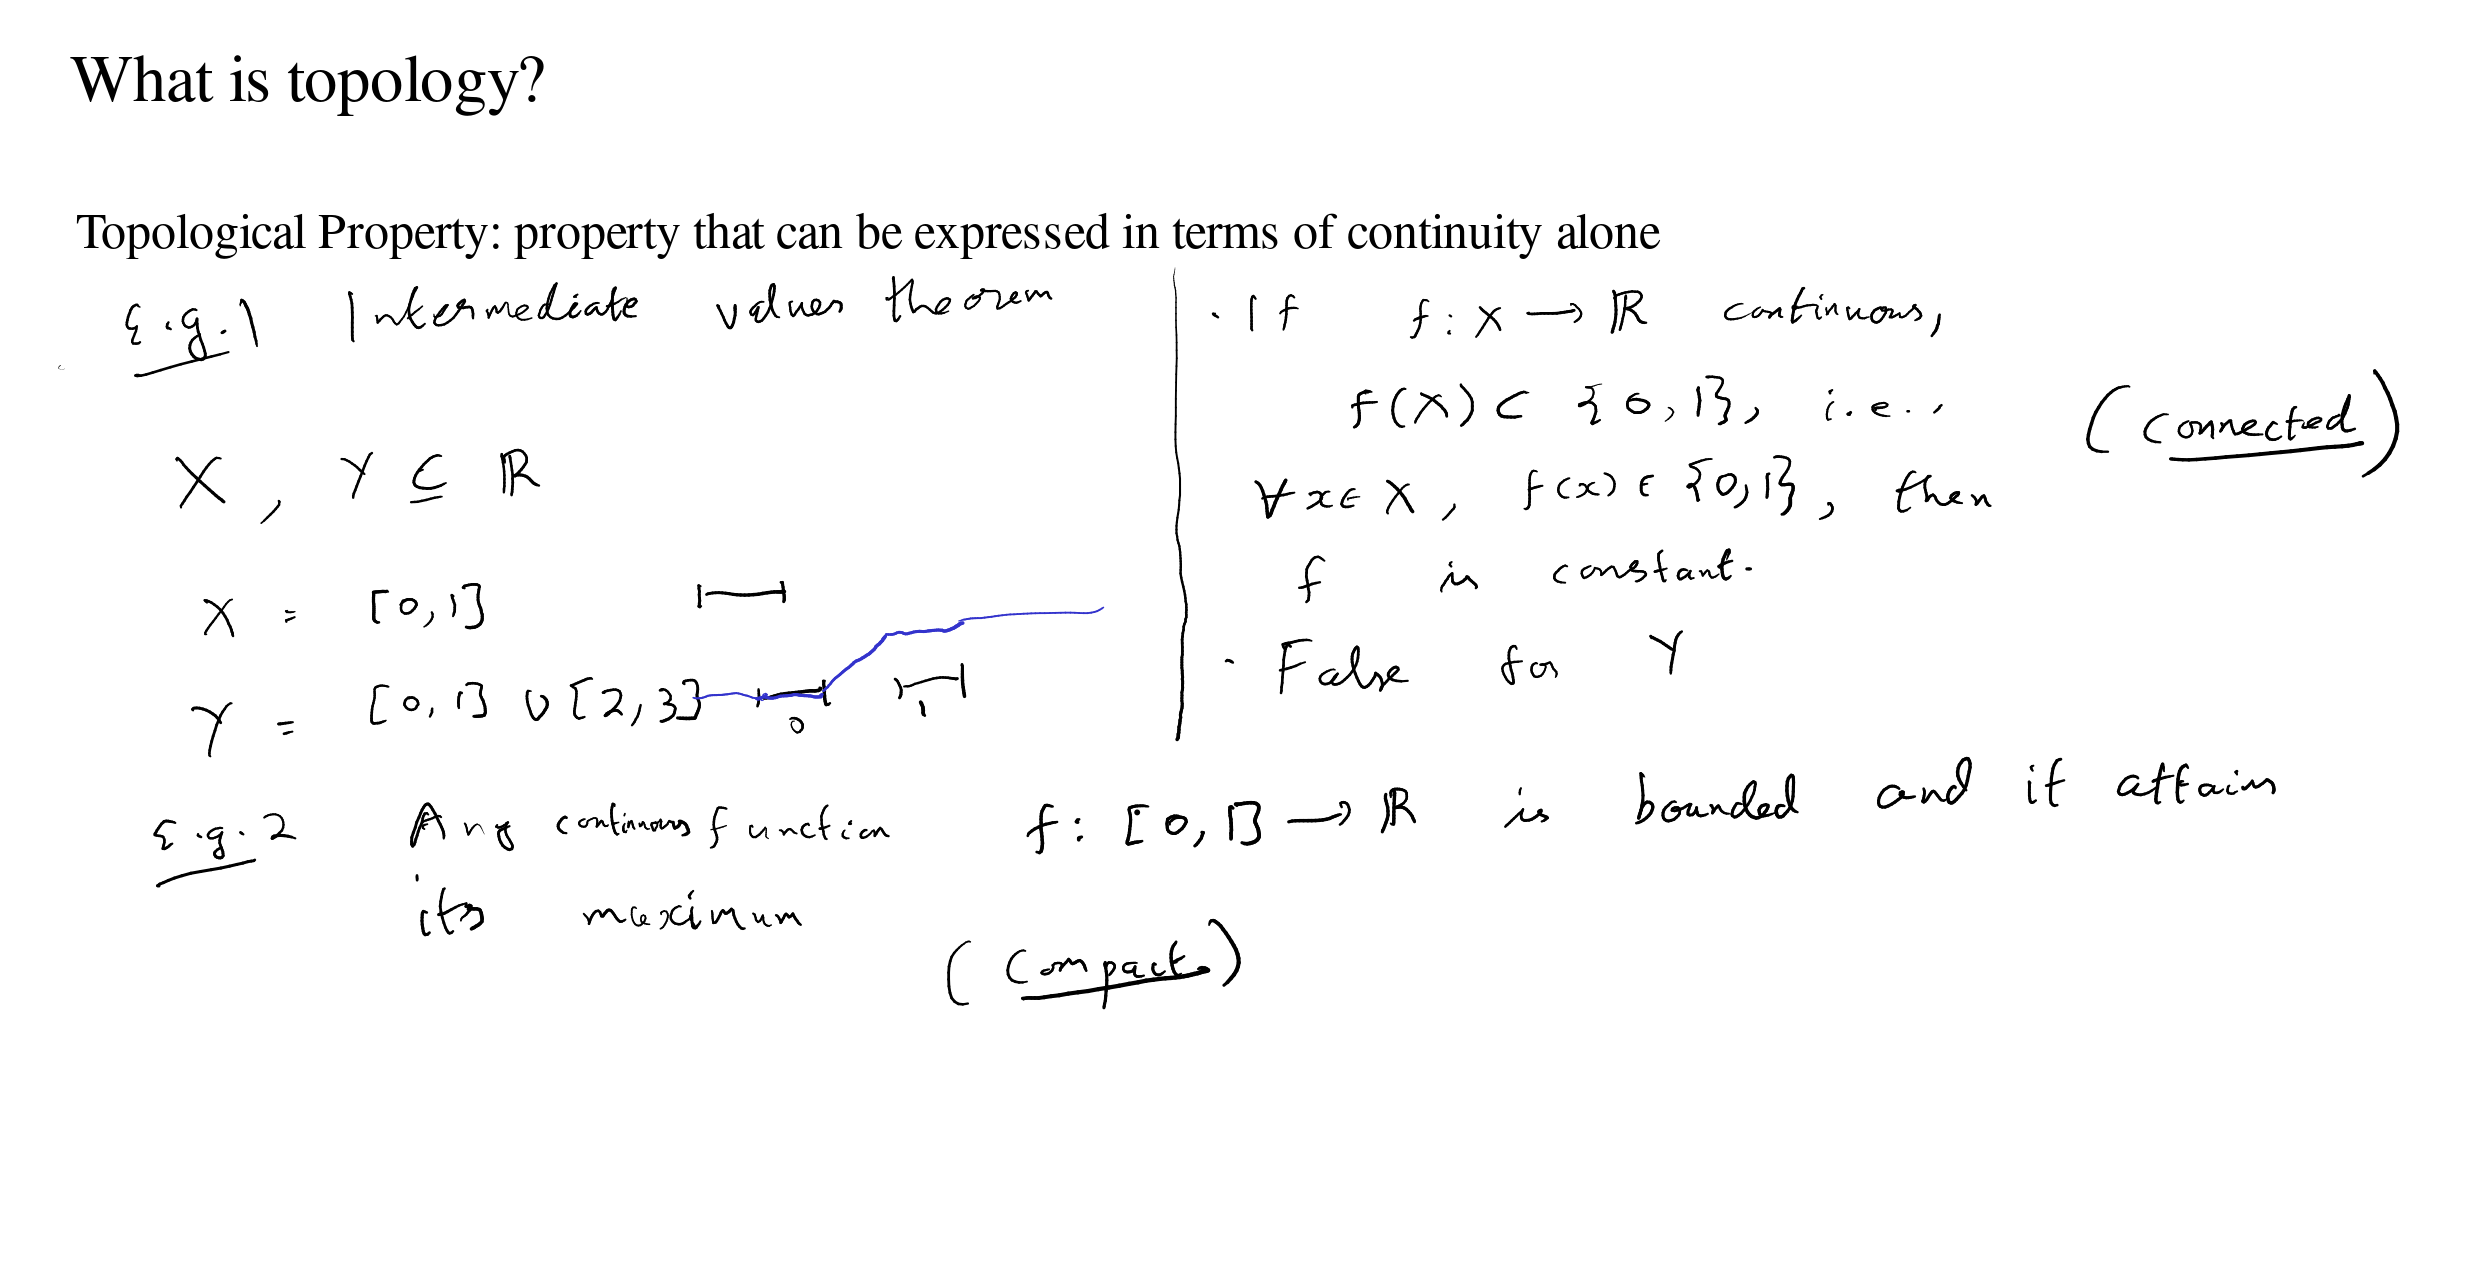 What is topology?
Topological Property: property that can be expressed in terms of continuity alone
E.g.1 Intermediate values theorem
X, Y ⊆ ℝ
X = [0,1]
Y = [0,1] ∪ [2,3]
0 1
· If f: X → ℝ continuous,
f(X) ⊂ {0,1}, i.e.,
∀ x ∈ X, f(x) ∈ {0,1}, then
f is constant.
(Connected)
· False for Y
E.g.2 Any continuous function f: [0,1] → ℝ is bounded and it attains
its maximum
(Compact)